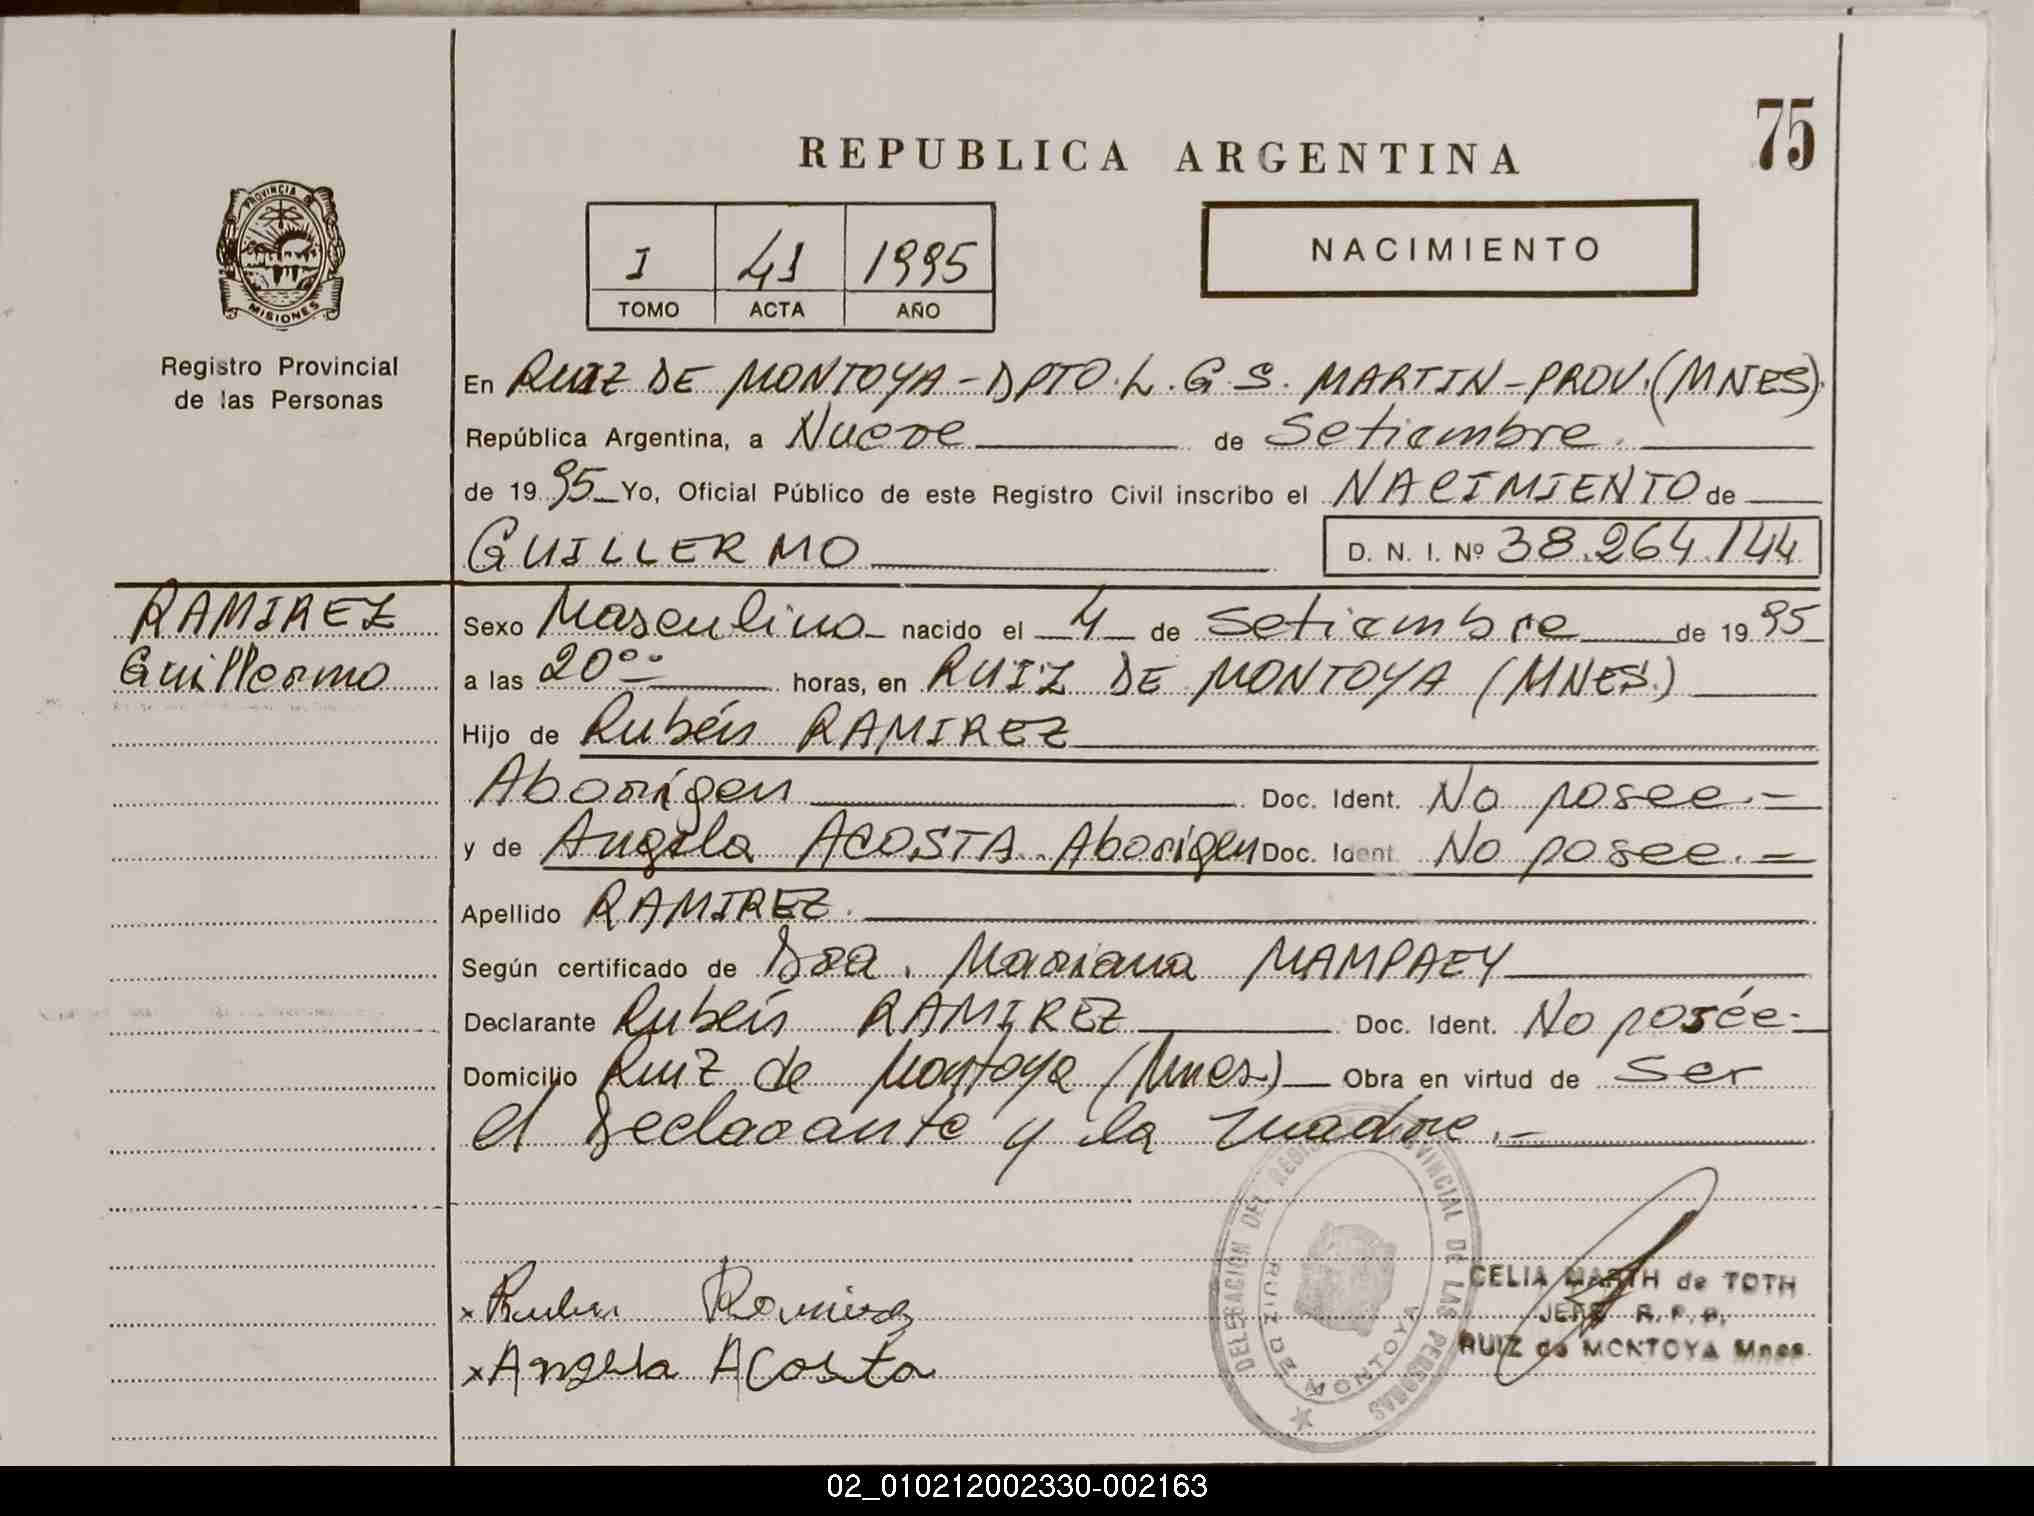 75
REPUBLICA ARGENTINA
PROVINCIA DE
MISIONES
Registro Provincial
de las Personas
I 41 1995
TOMO ACTA AÑO
NACIMIENTO
En RUIZ DE MONTOYA - DPTO. L. G. S. MARTIN - PROV. (MNES).
República Argentina, a Nueve de Setiembre.
de 19 95 Yo, Oficial Público de este Registro Civil inscribo el NACIMIENTO de
GUILLERMO D. N. I. Nº 38.264.144
RAMIREZ
Guillermo
Sexo Masculino nacido el 4 de Setiembre de 19 95
a las 20°° horas, en RUIZ DE MONTOYA (MNES.)
Hijo de Rubén RAMIREZ
Aborígen Doc. Ident. No posee.-
y de Angela ACOSTA. Aborígen Doc. Ident. No posee.-
Apellido RAMIREZ.
Según certificado de Dra. Mariana MAMPAEY
Declarante Rubén RAMIREZ Doc. Ident. No posée-
Domicilio Ruiz de Montoya (Mnes.) Obra en virtud de ser
el Declarante y la madre.-
x Ruben Ramirez
x Angela Acosta
DELEGACION DEL REGISTRO PROVINCIAL DE LAS PERSONAS
RUIZ DE MONTOYA
CELIA MARTH de TOTH
JEFE R. P. P.
RUIZ de MONTOYA Mnes.
02_010212002330-002163